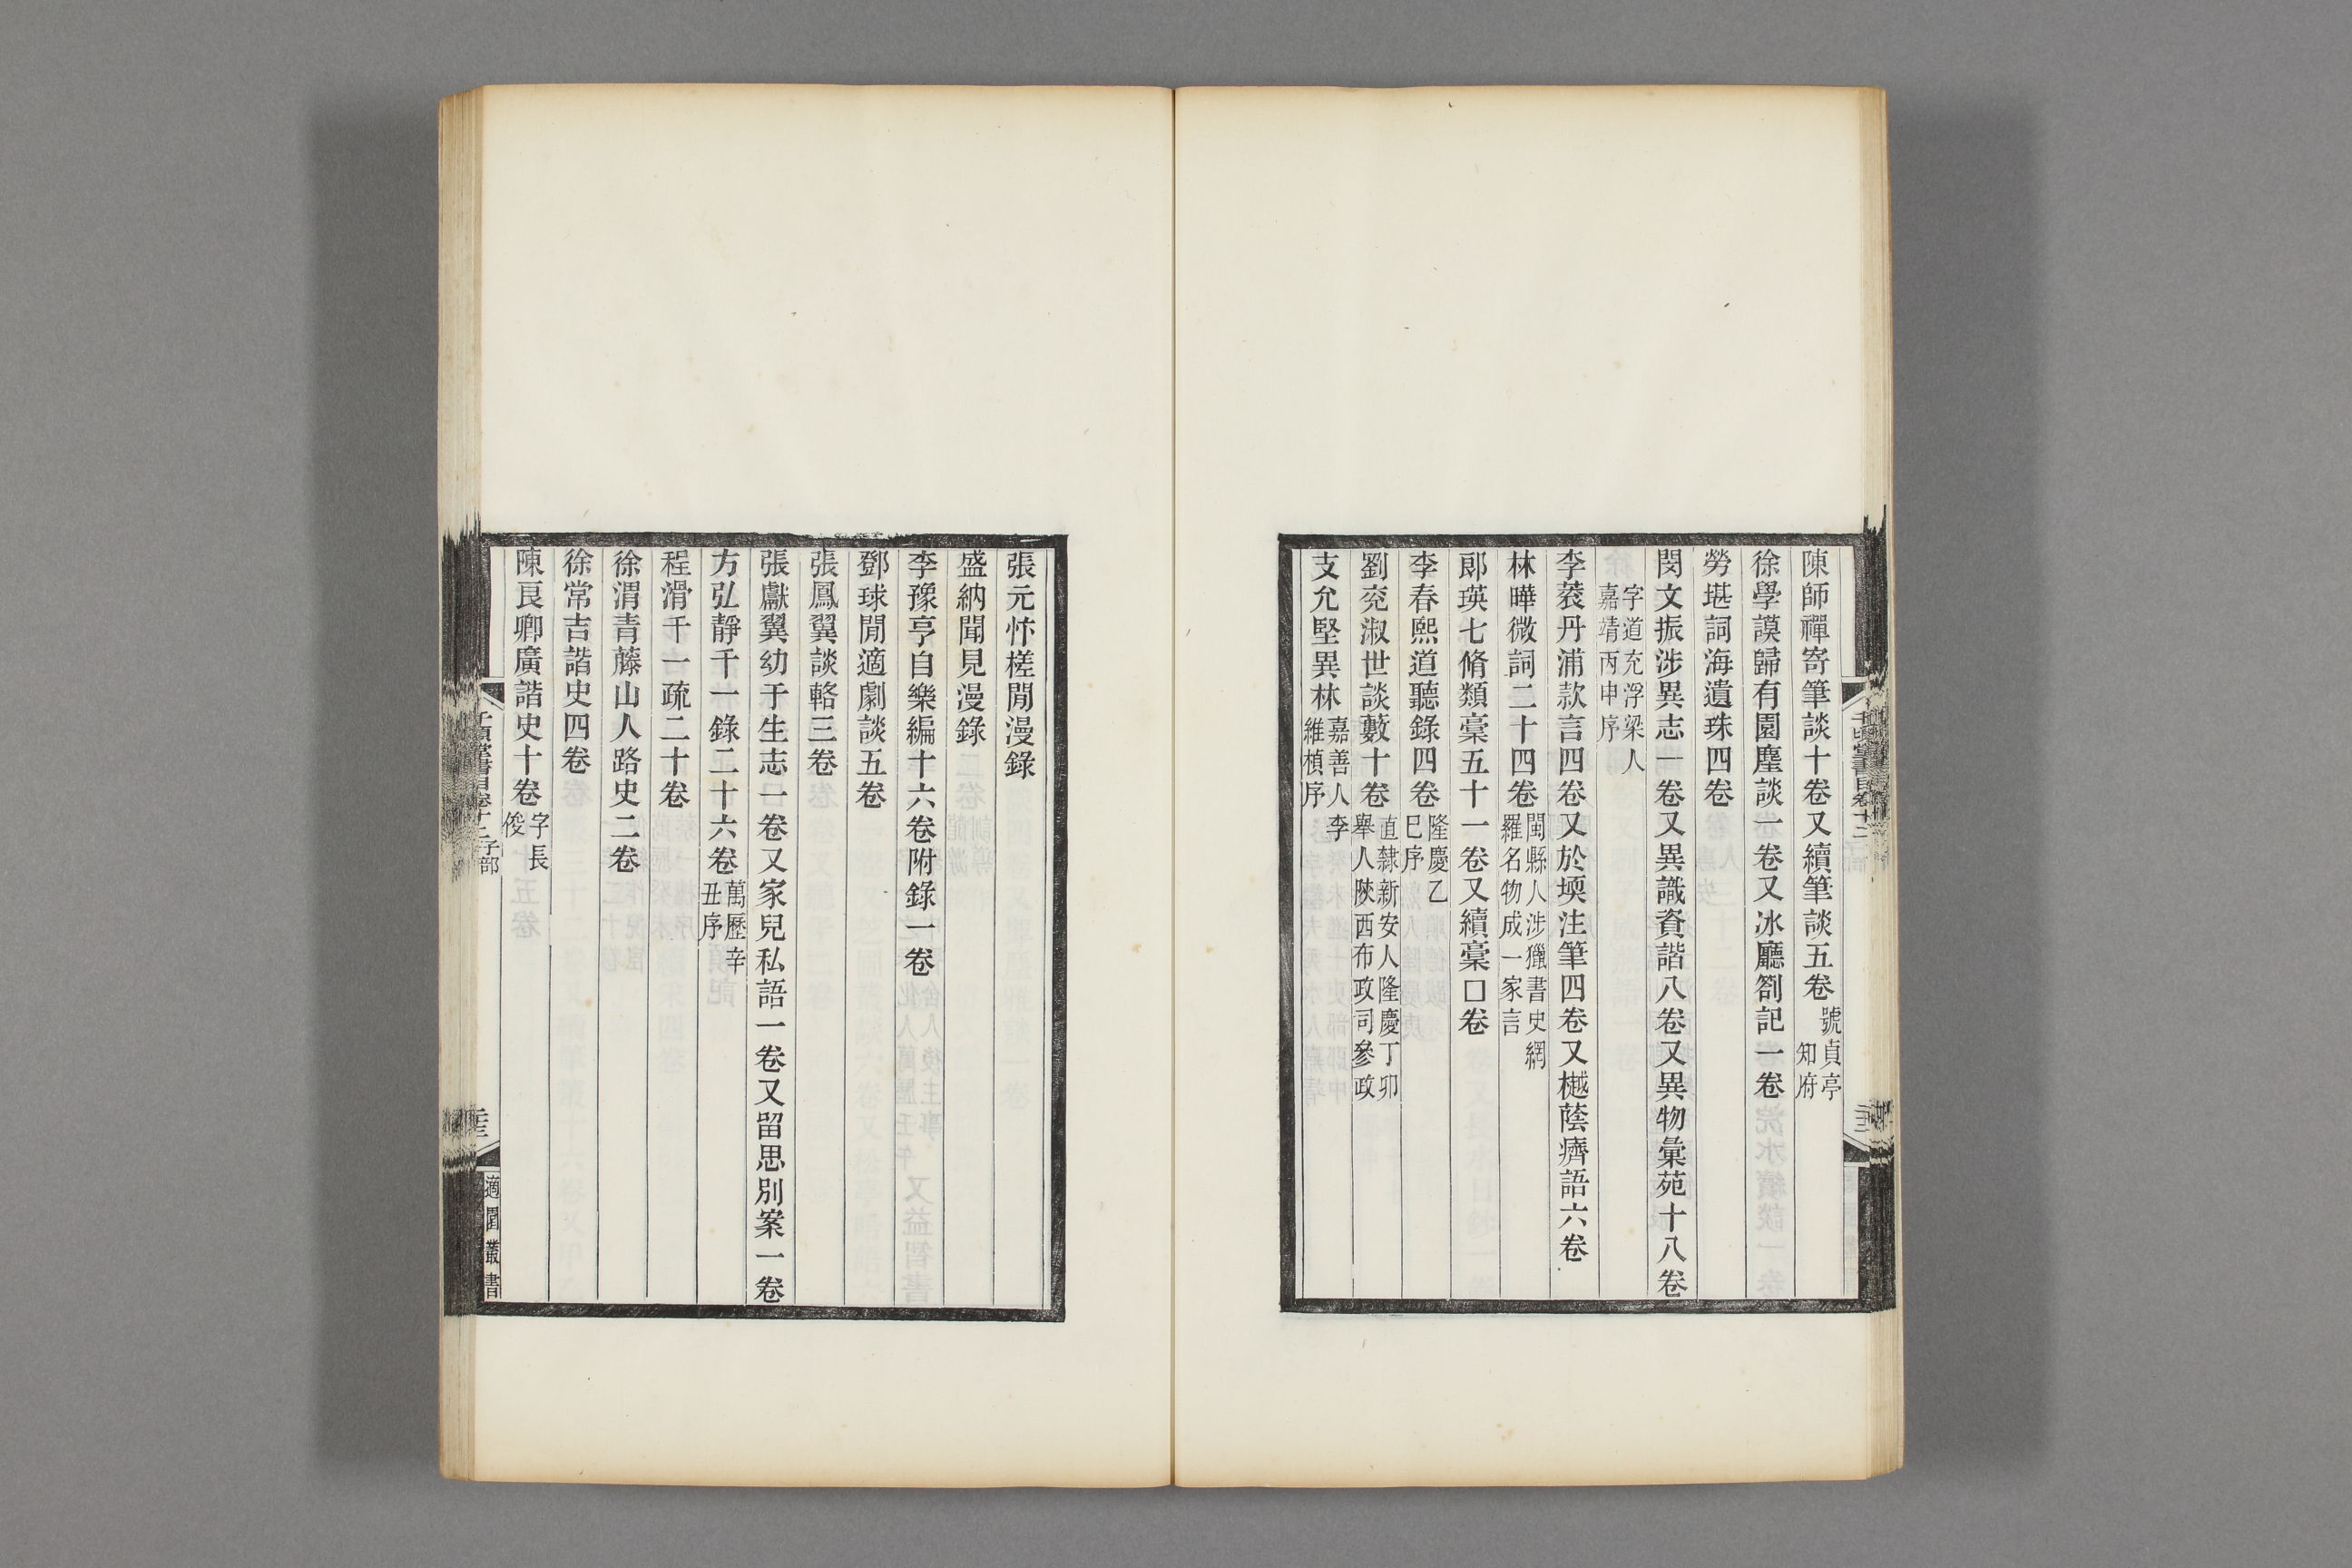 陳師禪寄筆談十卷又續筆談五卷號貞亭知府
徐學謨歸有園麈談一卷又冰廳劄記一卷
勞堪詞海遺珠四卷
閔文振涉異志一卷又異識資諧八卷又異物彙苑十八卷
字道充浮梁人嘉靖丙申序
李蓘丹浦款言四卷又於堧注筆四卷又樾蔭㾹語六卷
林曄微詞二十四卷閩縣人涉獵書史網羅名物成一家言
郎瑛七脩類稾五十一卷又續稾□卷
李春熙道聽錄四卷隆慶乙巳序
劉兖淑世談藪十卷直隸新安人隆慶丁卯舉人陝西布政司參政
支允堅異林嘉善人李維楨序
張元忭槎閒漫錄
盛納聞見漫錄
李豫亨自樂編十六卷附錄一卷
鄧球閒適劇談五卷
張鳳翼談輅三卷
張獻翼幼于生志一卷又家兒私語一卷又留思別案一卷
方弘靜千一錄二十六卷萬歷辛丑序
程滑千一疏二十卷
徐渭青藤山人路史二卷
徐常吉諧史四卷
陳良卿廣諧史十卷字長俊
千頃堂書目卷十二子部
適園叢書